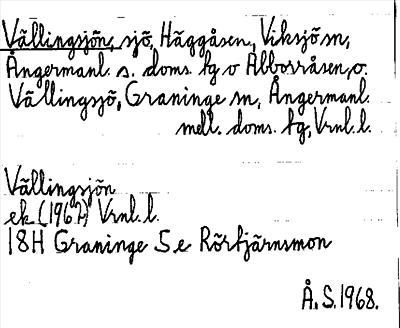 Vällingsjön, sjö, Häggåsen, Viksjö sn,
Ångermanl. s. doms. hg o Abborråsen, o.
Vällingsjö, Graninge sn, Ångermanl.
mell. doms. hg, Vrnl. l.
Vällingsjön
ek (1967) Vrnl. l.
18H Graninge S e Rörtjärnsmon
Å. S. 1968.